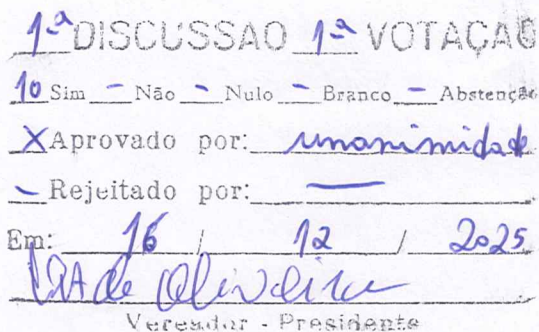 1ª DISCUSSAO 1ª VOTAÇAO
10 Sim - Não - Nulo - Branco - Abstenção
X Aprovado por: unanimidade
- Rejeitado por: —
Em: 16 / 12 / 2025
de Oliveira
Vereador - Presidente